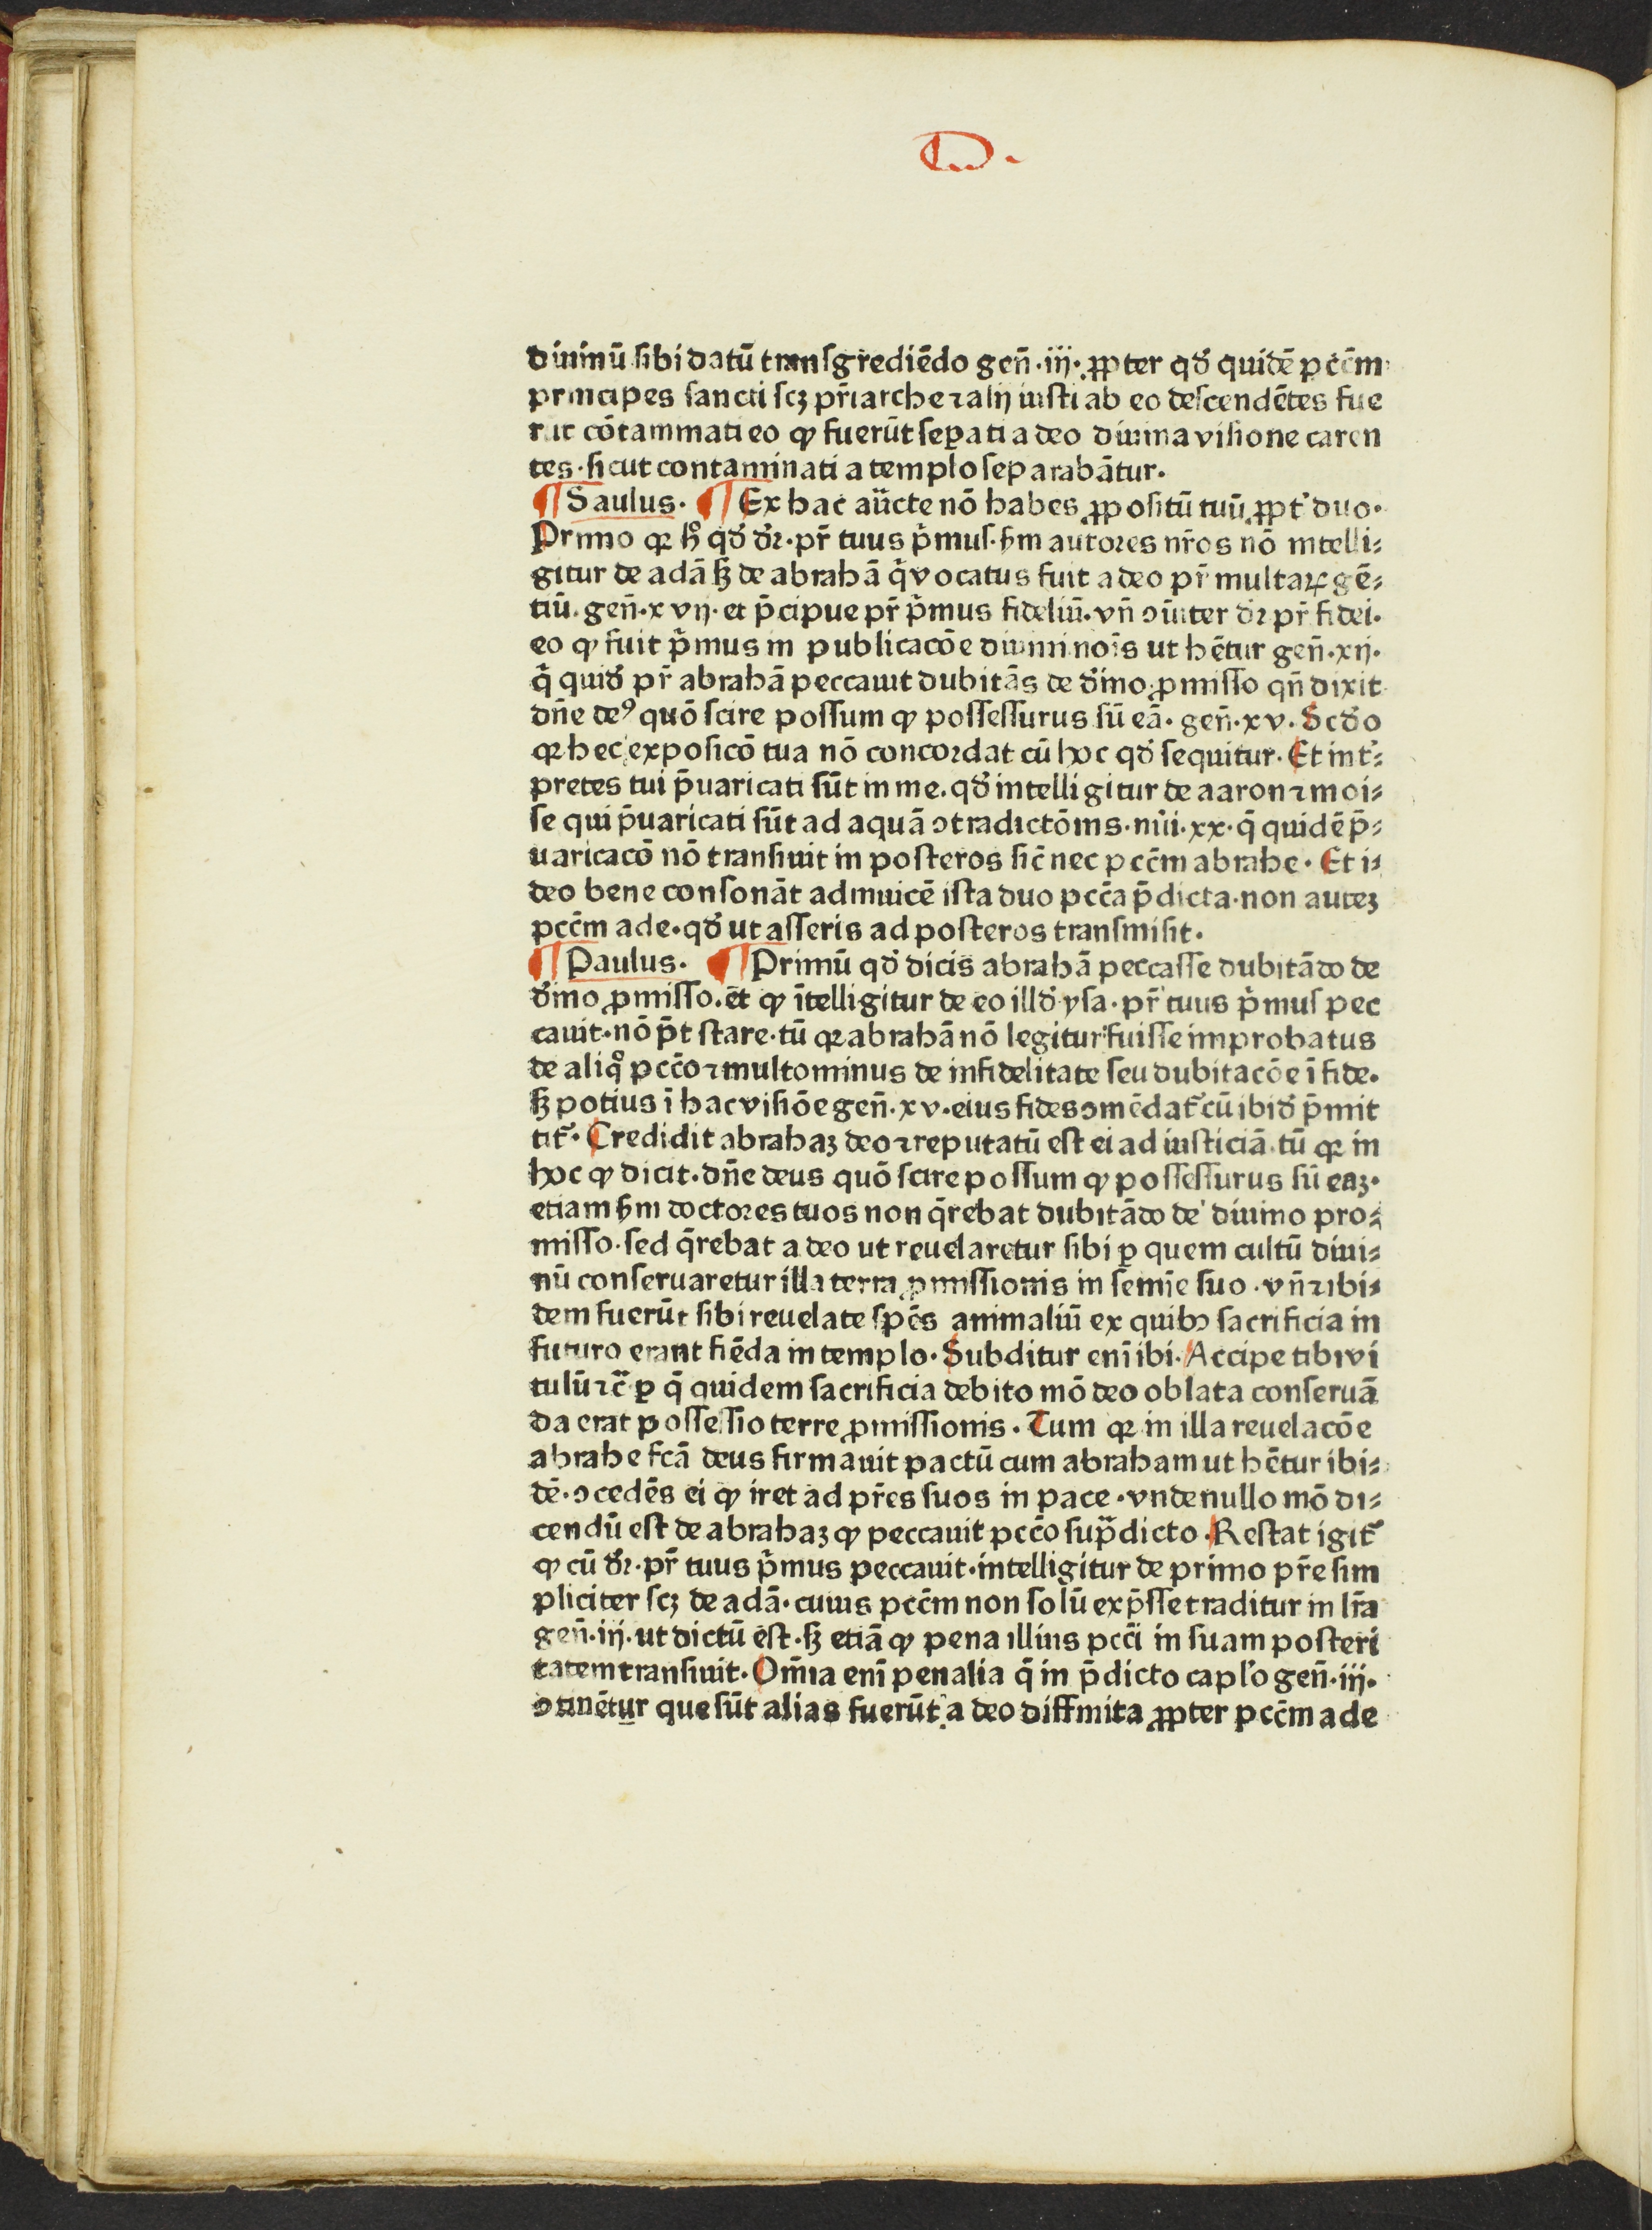 D.
diuinū sibi datū transgrediēdo gen̄·iij·ꝓpter qd̛ quidē pccm̄
principes sancti scꝫ pr̄iarche ⁊ alij iusti ab eo descendētes fue
rūt cōtaminati eo ꝙ fuerūt seꝑati a deo diuina visione caren
tes·sicut contaminati a templo separabātur.
¶ Saulus· ¶ Ex hac auc̄te nō habes ꝓpositū tuū ꝓpt̛ duo·
Primo qꝛ hͦ qd̛ dr̛·pr̄ tuus pͥmus·ẜm autores nr̄os nō intelli⸗
gitur de adā ꜱꝫ de abrahā qͥ vocatus fuit a deo pr̄ multaꝝ gē⸗
tiū·gen̄·xvij·et p̄cipue pr̄ pͥmus fideliū·vn̄ ꝯīter dr̛ pr̄ fidei·
eo ꝙ fuit pͥmus in publicacōe diuini noīs ut hētur gen̄·xij·
qͥ quid̛ pr̄ abrahā peccauit dubitās de d̛ino ꝓmisso qn̄ dixit
dn̄e deꝰ quō scire possum ꝙ possessurus sū eā·gen̄·xv·Scd̛o
qꝛ hec exposicō tua nō concordat cū hoc qd̛ sequitur·Et int̛⸗
pretes tui p̄uaricati sūt in me·qd̛ intelligitur de aaron ⁊ moi⸗
se qui p̄uaricati sūt ad aquā ꝯtradictōnis·nūi·xx·q̄ quidē p̄⸗
uaricacō nō transiuit in posteros sic̄ nec pccm̄ abrahe·Et i⸗
deo bene consonāt adinuicē ista duo pcc̄a p̄dicta·non auteꝫ
pccm̄ ade·qd̛ ut asseris ad posteros transmisit·
¶ Paulus· ¶ Primū qd̛ dicis abrahā peccasse dubitādo de
d̛ino ꝓmisso·et ꝙ ītelligitur de eo illd̛ ysa·pr̄ tuus pͥmus pec
cauit·nō pt̄ stare·tū qꝛ abrahā nō legitur fuisse improbatus
de aliqͦ pcc̄o ⁊ multominus de infidelitate seu dubitacōe ī fide·
ꜱꝫ potius ī hac visiōe gen̄·xv·eius fides ꝯmēdat̛ cū ibid̛ p̄mit
tit̛·Credidit abrahaꝫ deo ⁊ reputatū est ei ad iusticiā·tū qꝛ in
hoc ꝙ dicit·dn̄e deus quō scire possum ꝙ possessurus sū eaꝫ·
etiam ẜm doctores tuos non q̄rebat dubitādo de diuino pro⸗
misso·sed q̄rebat a deo ut reuelaretur sibi ꝑ quem cultū diui⸗
nū conseruaretur illa terra ꝓmissionis in semīe suo·vn̄ ⁊ ibi⸗
dem fuerūt sibi reuelate spēs animaliū ex quibꝫ sacrificia in
futuro erant fiēda in templo·Subditur enī ibi·Accipe tibi vi
tulū ⁊c̄·ꝑ q̄ quidem sacrificia debito mō deo oblata conseruā
da erat possessio terre ꝓmissionis·Tum qꝛ in illa reuelacōe
abrahe fcā deus firmauit pactū cum abraham ut hētur ibi⸗
dē·ꝯcedēs ei ꝙ iret ad pr̄es suos in pace·vnde nullo mō di⸗
cendū est de abrahaꝫ ꝙ peccauit pcc̄o supͣdicto·Restat igit̛
ꝙ cū dr̛·pr̄ tuus pͥmus peccauit·intelligitur de primo pr̄e sim
pliciter scꝫ de adā·cuius pccm̄ non solū exp̄sse traditur in lr̄a
gen̄·iij·ut dictū est·ꜱꝫ etiā ꝙ pena illius pcc̄i in suam posteri
tatem transiuit·Om̄ia enī penalia q̄ in p̄dicto caplơ gen̄·iij·
ꝯtinētur que sūt alias fuerūt a deo diffinita ꝓpter pccm̄ ade